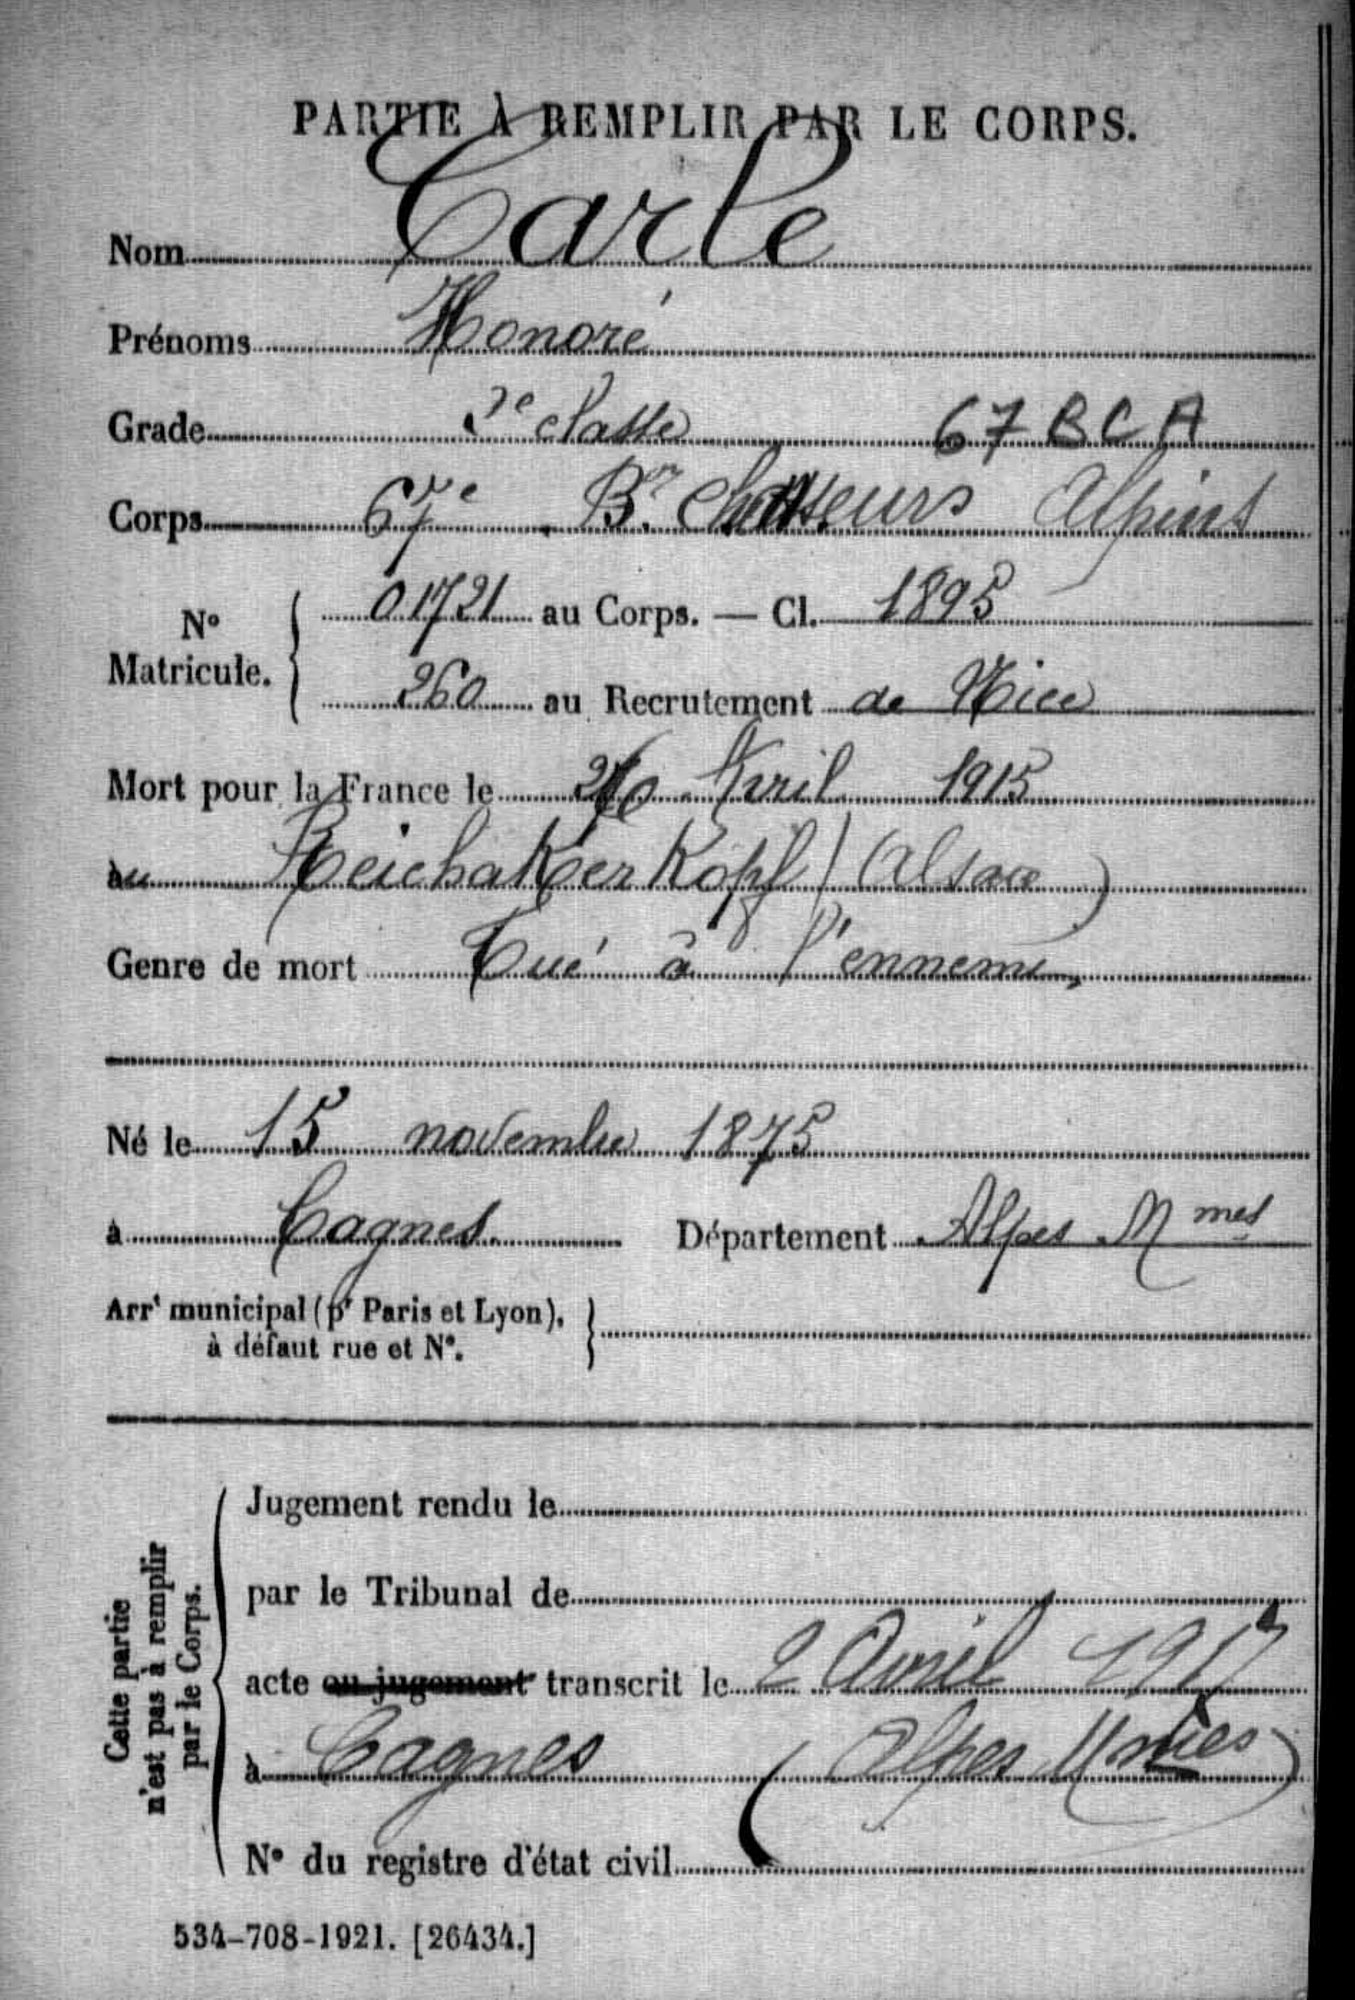 PARTIE À REMPLIR PAR LE CORPS.
Nom Carle
Prénoms Honoré
Grade 2e classe 67 BCA
Corps 67e Bn Chasseurs Alpins
No Matricule. 01721 au Corps. — Cl. 1895
260 au Recrutement de Nice
Mort pour la France le Avril 1915
au Reichakerkopf (Alsace)
Genre de mort Tué à l'ennemi
Né le 15 novembre 1875
à Cagnes. Département Alpes Mmes
Arrt municipal (pr Paris et Lyon),
à défaut rue et No.
Cette partie
n'est pas à remplir
par le Corps.
Jugement rendu le
par le Tribunal de
acte ou jugement transcrit le 2 Avril 1917
à Cagnes (Alpes Mmes)
No du registre d'état civil
534-708-1921. [26434.]